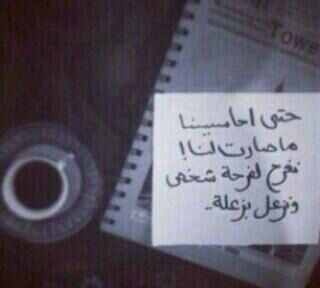 Towe
حتى احاسيسنا
ما صارت لنا!
نفرح لفرحة شخص
ونزعل بزعلة..